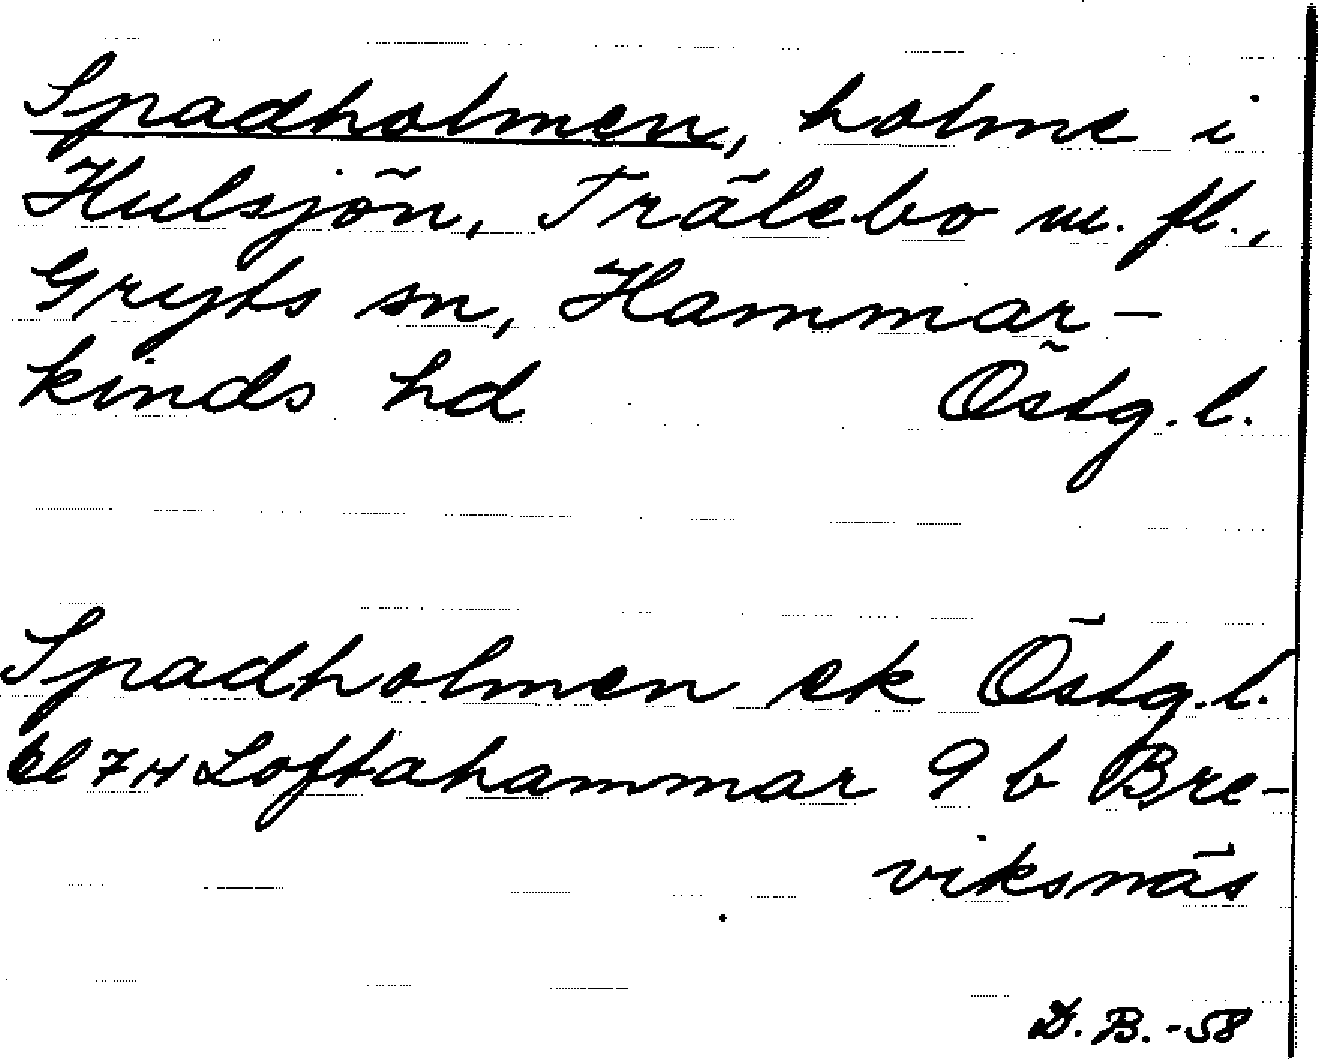 Spadholmen, holme i
Hulsjön, Trälebo m. fl.,
Gryts sn, Hammar-
kinds hd Östg. l.
Spadholmen ek Östg. l.
bl 7 H Loftahammar 9 b Bre-
viksnäs
D. B. -58